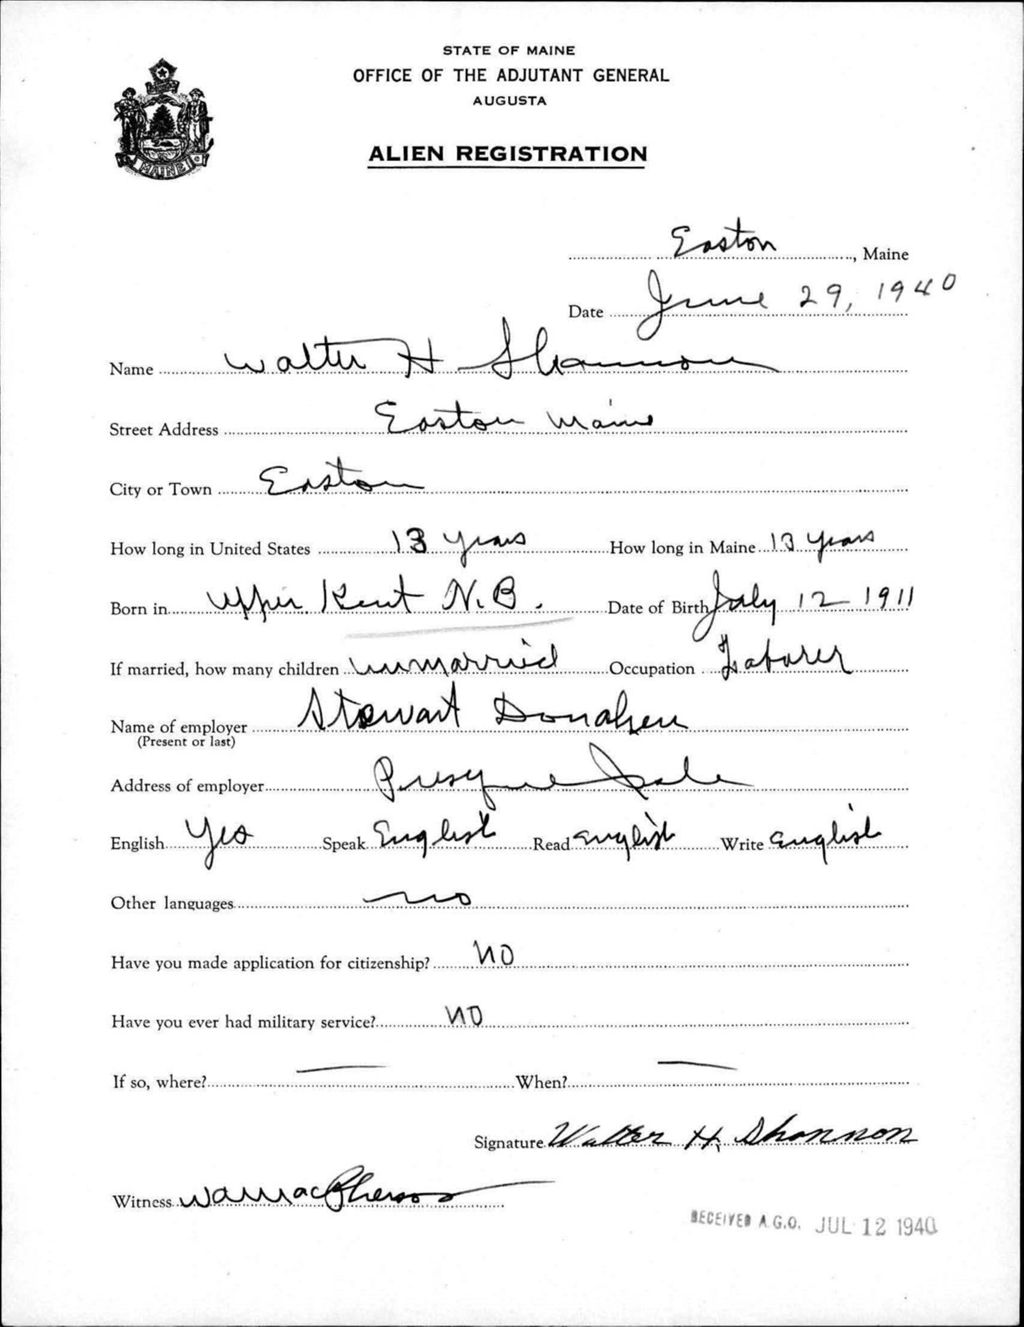 STATE OF MAINE
OFFICE OF THE ADJUTANT GENERAL
AUGUSTA
ALIEN REGISTRATION
MAINE
Easton, Maine
Date June 29, 1940
Name Walter H Shannon
Street Address Easton Maine
City or Town Easton
How long in United States 13 years How long in Maine 13 years
Born in Upper Kent N.B. Date of Birth July 12 1911
If married, how many children unmarried Occupation Laborer
Name of employer Stewart Donahen
(Present or last)
Address of employer Presque Isle
English Yes Speak English Read English Write English
Other languages no
Have you made application for citizenship? NO
Have you ever had military service? NO
If so, where? — When? —
Signature Walter H. Shannon
Witness
RECEIVED A.G.O. JUL 12 1940